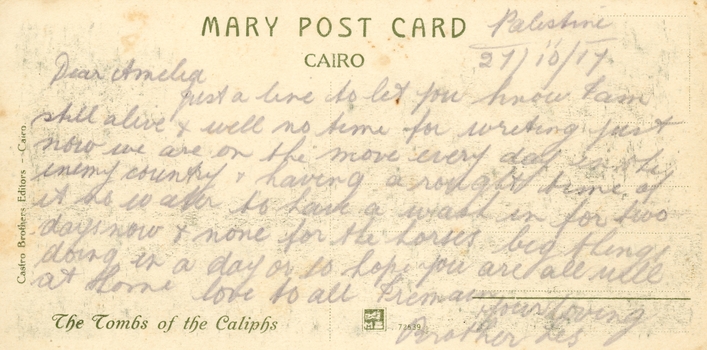 MARY POST CARD
CAIRO
Palestine
27/10/17
Dear Amelia
just a line to let you know I am
still alive & well no time for writing just
now we are on the move every day in the
enemy country & having a rought time of
it no water to have a wash in for two
days now & none for the horses big things
doing in a day or so hope you are all well
at Home love to all I remain
Your Loving
Brother Les
The Tombs of the Caliphs
Castro Brothers Editors - Cairo